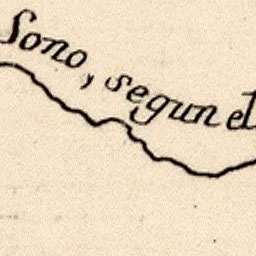 Sono, segun el